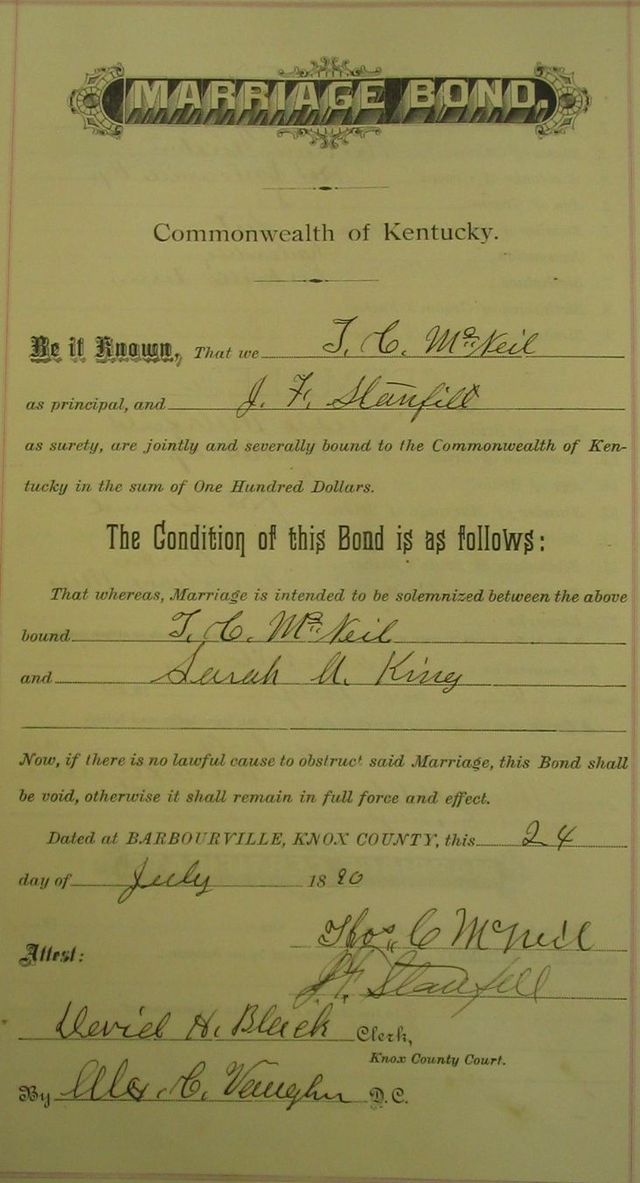 MARRIAGE BOND.
Commonwealth of Kentucky.
Be it Known, That we T. C. McNeil
as principal, and J. F. Stanfill
as surety, are jointly and severally bound to the Commonwealth of Ken-
tucky in the sum of One Hundred Dollars.
The Condition of this Bond is as follows:
That whereas, Marriage is intended to be solemnized between the above
bound T. C. McNeil
and Sarah A. King
Now, if there is no lawful cause to obstruct said Marriage, this Bond shall
be void, otherwise it shall remain in full force and effect.
Dated at BARBOURVILLE, KNOX COUNTY, this 24
day of July 1890
Thos. C McNeil
Attest:
J. F. Stanfill
David H. Black Clerk,
Knox County Court.
By Alex. C. Vaughn D. C.